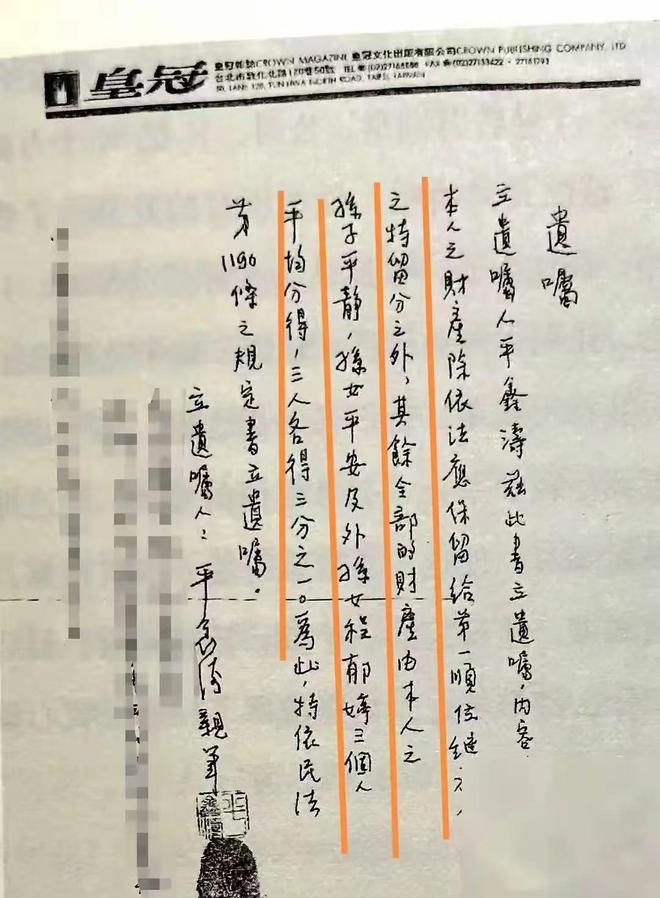 皇冠
皇冠雜誌CROWN MAGAZINE 皇冠文化出版有限公司CROWN PUBLISHING COMPANY, LTD
台北市敦化北路120巷50號 TEL (02)27168888 FAX (02)27133422・27161793
50, LANE 120, TUN HWA NORTH ROAD, TAIPEI, TAIWAN
遺囑
立遺囑人平鑫濤茲此書立遺囑,內容
本人之財產除依法應保留給第一順位繼
之特留分之外,其餘全部的財產由本人之
孫子平靜,孫女平安及外孫女程郁婷三個人
平均分得,三人各得三分之一。為此,特依民法
第1190條之規定書立遺囑。
立遺囑人:平鑫濤親筆